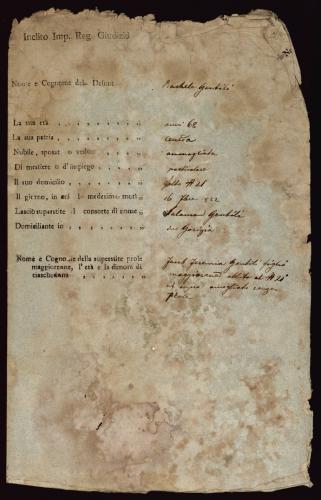 Inclito Imp. Reg. Giudizio
Nome e Cognome del Defont Rachele Gentili
La sua età anni 68
La sua patria
Nubile, sposat o vedov ammogliata
Di mestiere o d'impiego particolare
Il suo domicilio Nº 21
Il giorno, in cui l medesim morì 16
Lasciò superstite l consorte di nome Salamon Gentili
Domiciliante in Gorizia
Nome e Cogno e della superstite prole
maggiorenne, l'età e la dimora di
ciascheduno
Jeremia Gentili figlio
maggiorenne abita al Nº 21
ammogliato senza
prole